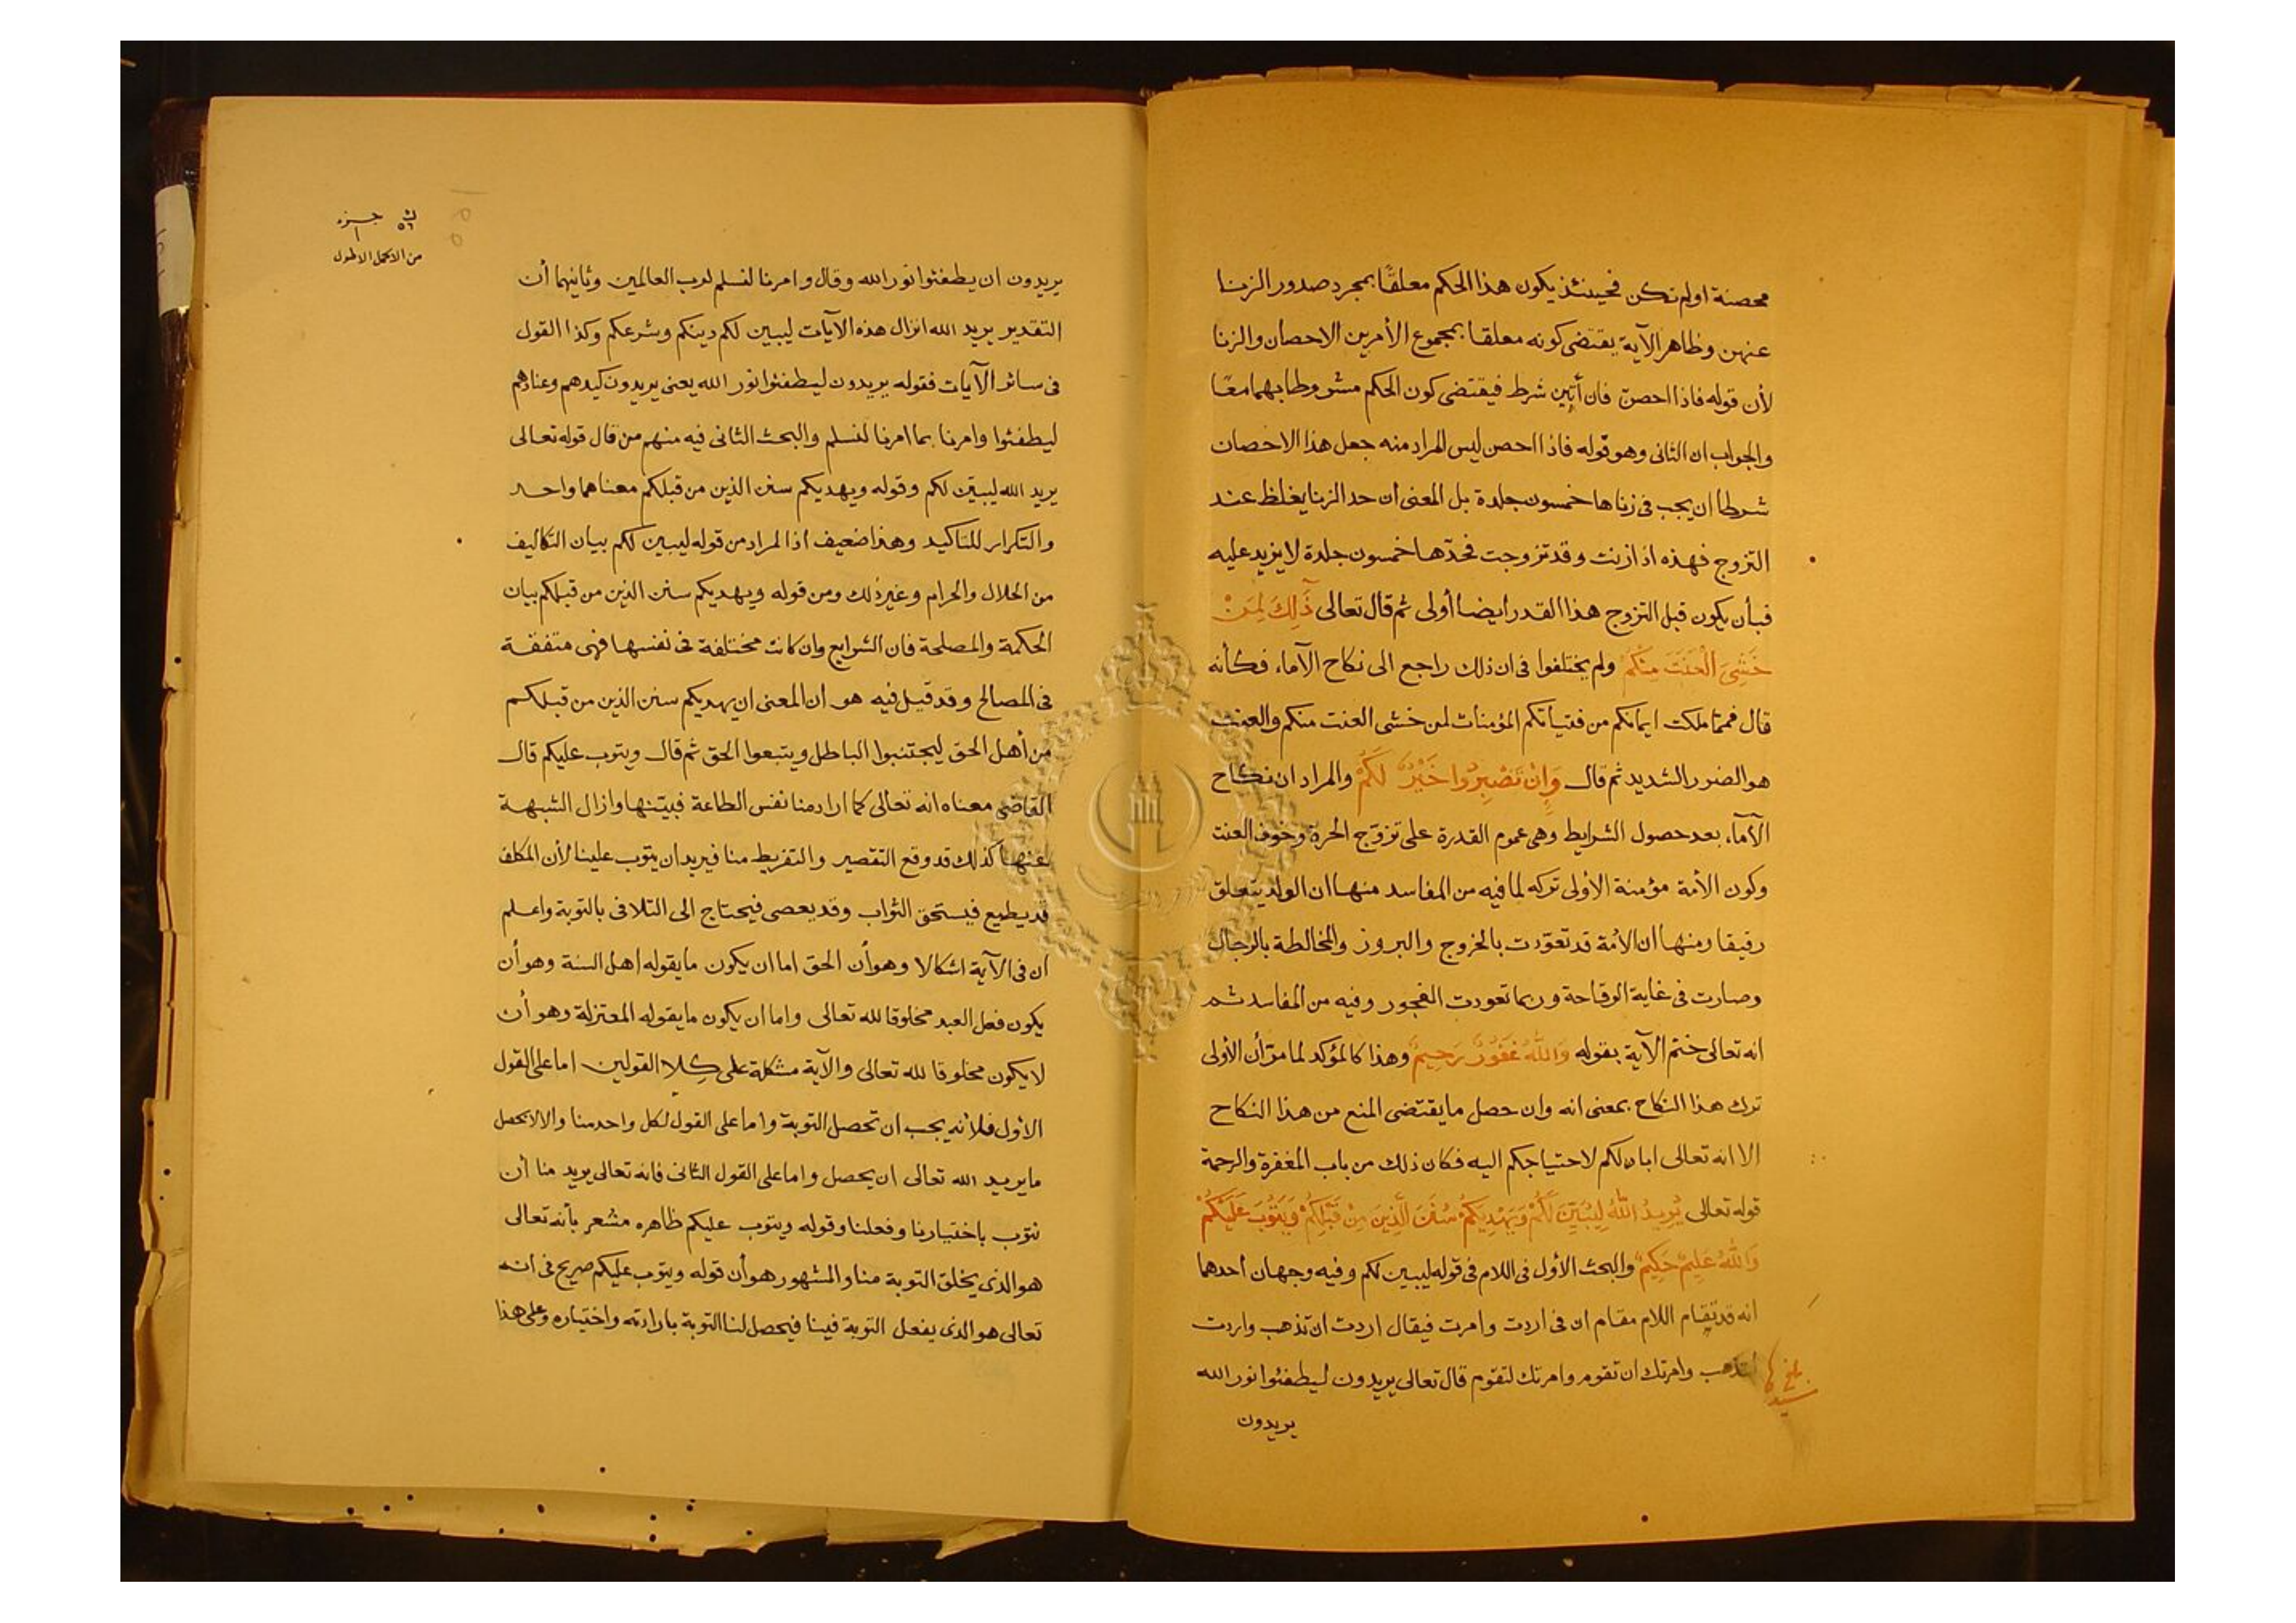 محصنة اولم تكن فحينئذ يكون هذا الحكم معلقًا بمجرد صدور الزنا
عنهن وظاهر الآية يقتضى كونه معلقا بمجموع الأمرين الاحصان والزنا
لأن قوله فاذا احصنّ فان أتين شرط فيقتضى كون الحكم مشروطا بهما معًا
والجواب ان الثانى وهو قوله فاذا احصن ليس المراد منه جعل هذا الاحصان
شرطا ان يجب فى زناها خمسون جلدة بل المعنى ان حد الزنا يغلظ عند
التزوج فهذه اذا زنت وقد تزوجت فحدّها خمسون جلدة لا يزيد عليه
فبأن يكون قبل التزوج هذا القدر ايضا أولى ثم قال تعالى ذَلِكَ لِمَنْ
خَشِىَ الْعَنَتَ مِنْكُمْ ولم يختلفوا فى ان ذلك راجع الى نكاح الآماء فكأنه
قال فمما ملكت ايمانكم من فتياتكم المؤمنات لمن خشى العنت منكم والعنت
هو الضرر الشديد ثم قال وَاِنْ تَصْبِرُوا خَيْرٌ لَكُمْ والمراد ان نكاح
الآمآء بعد حصول الشرايط وهى عموم القدرة على تزوّج الحرة وخوف العنت
وكون الأمة مؤمنة الأولى تركه لما فيه من المفاسد منها ان الولد يتعلق
رقيقا ومنها ان الأمة قد تعوّدت بالخروج والبروز والمخالطة بالرجال
وصارت فى غاية الوقاحة وربما تعودت الفجور وفيه من المفاسد ثم
انه تعالى ختم الآية بقوله وَاللّٰهُ غَفُورٌ رَحِيمٌ وهذا كالمؤكد لما مرّ أن الأولى
ترك هذا النكاح بمعنى انه وان حصل ما يقتضى المنع من هذا النكاح
الا انه تعالى اباح لكم لاحتياجكم اليه فكان ذلك من باب المغفرة والرحمة
قوله تعالى يُرِيدُ اللّٰهُ لِيُبَيِّنَ لَكُمْ وَيَهْدِيَكُمْ سُنَنَ الَّذِينَ مِنْ قَبْلِكُمْ وَيَتُوبَ عَلَيْكُمْ
وَاللّٰهُ عَلِيمٌ حَكِيمٌ والبحث الأول فى اللام فى قوله ليبين لكم وفيه وجهان أحدهما
انه قد تقام اللام مقام ان فى اردت وامرت فيقال اردت ان تذهب واردت
لتذهب وامرتك ان تقوم وامرتك لتقوم قال تعالى يريدون ليطفئوا نور الله
يريدون
جزء
١
٥٦
من الاكمل الاطول
يريدون ان يطفئوا نور الله وقال وامرنا لنسلم لرب العالمين وثانيهما أن
التقدير يريد الله انزال هذه الآيات ليبين لكم دينكم وشرعكم وكذا القول
فى سائر الآيات فقوله يريدون ليطفئوا نور الله يعنى يريدون كيدهم وعنادهم
ليطفئوا وامرنا بما امرنا لنسلم والبحث الثانى فيه منهم من قال قوله تعالى
يريد الله ليبيّن لكم وقوله ويهديكم سنن الذين من قبلكم معناهما واحد
والتكرار للتاكيد وهذا ضعيف اذ المراد من قوله ليبين لكم بيان التكاليف
من الحلال والحرام وغير ذلك ومن قوله ويهديكم سنن الذين من قبلكم بيان
الحكمة والمصلحة فان الشرايع وان كانت مختلفة فى نفسها فهى متفقة
فى المصالح وقد قيل فيه هو ان المعنى ان يهديكم سنن الذين من قبلكم
من أهل الحق ليجتنبوا الباطل ويتبعوا الحق ثم قال ويتوب عليكم قال
القاضى معناه انه تعالى كما اراد منا نفس الطاعة فبيّنها وازال الشبهة
عنها كذلك قد وقع التقصير والتفريط منا فيريد ان يتوب علينا لأن المكلف
قد يطيع فيستحق الثواب وقد يعصى فيحتاج الى التلافى بالتوبة واعلم
ان فى الآية اشكالا وهو أن الحق اما ان يكون ما يقوله اهل السنة وهو أن
يكون فعل العبد مخلوقا لله تعالى واما ان يكون ما يقوله المعتزلة وهو أن
لا يكون مخلوقا لله تعالى والآية مشكلة على كِلا القولين اما على القول
الأول فلأنه يجب ان تحصل التوبة واما على القول لكل واحد منا والا لا يحصل
ما يريد الله تعالى ان يحصل واما على القول الثانى فانه تعالى يريد منا أن
نتوب باختيارنا وفعلنا وقوله ويتوب عليكم ظاهره مشعر بأنه تعالى
هو الذى يخلق التوبة منا والمشهور هو أن قوله ويتوب عليكم صريح فى انه
تعالى هو الذى يفعل التوبة فينا فيحصل لنا التوبة بارادته واختياره وعلى هذا